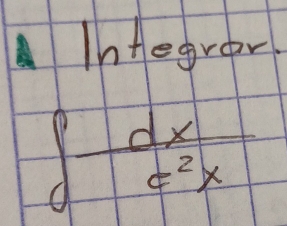 Integrar.
∫ dx / c²x